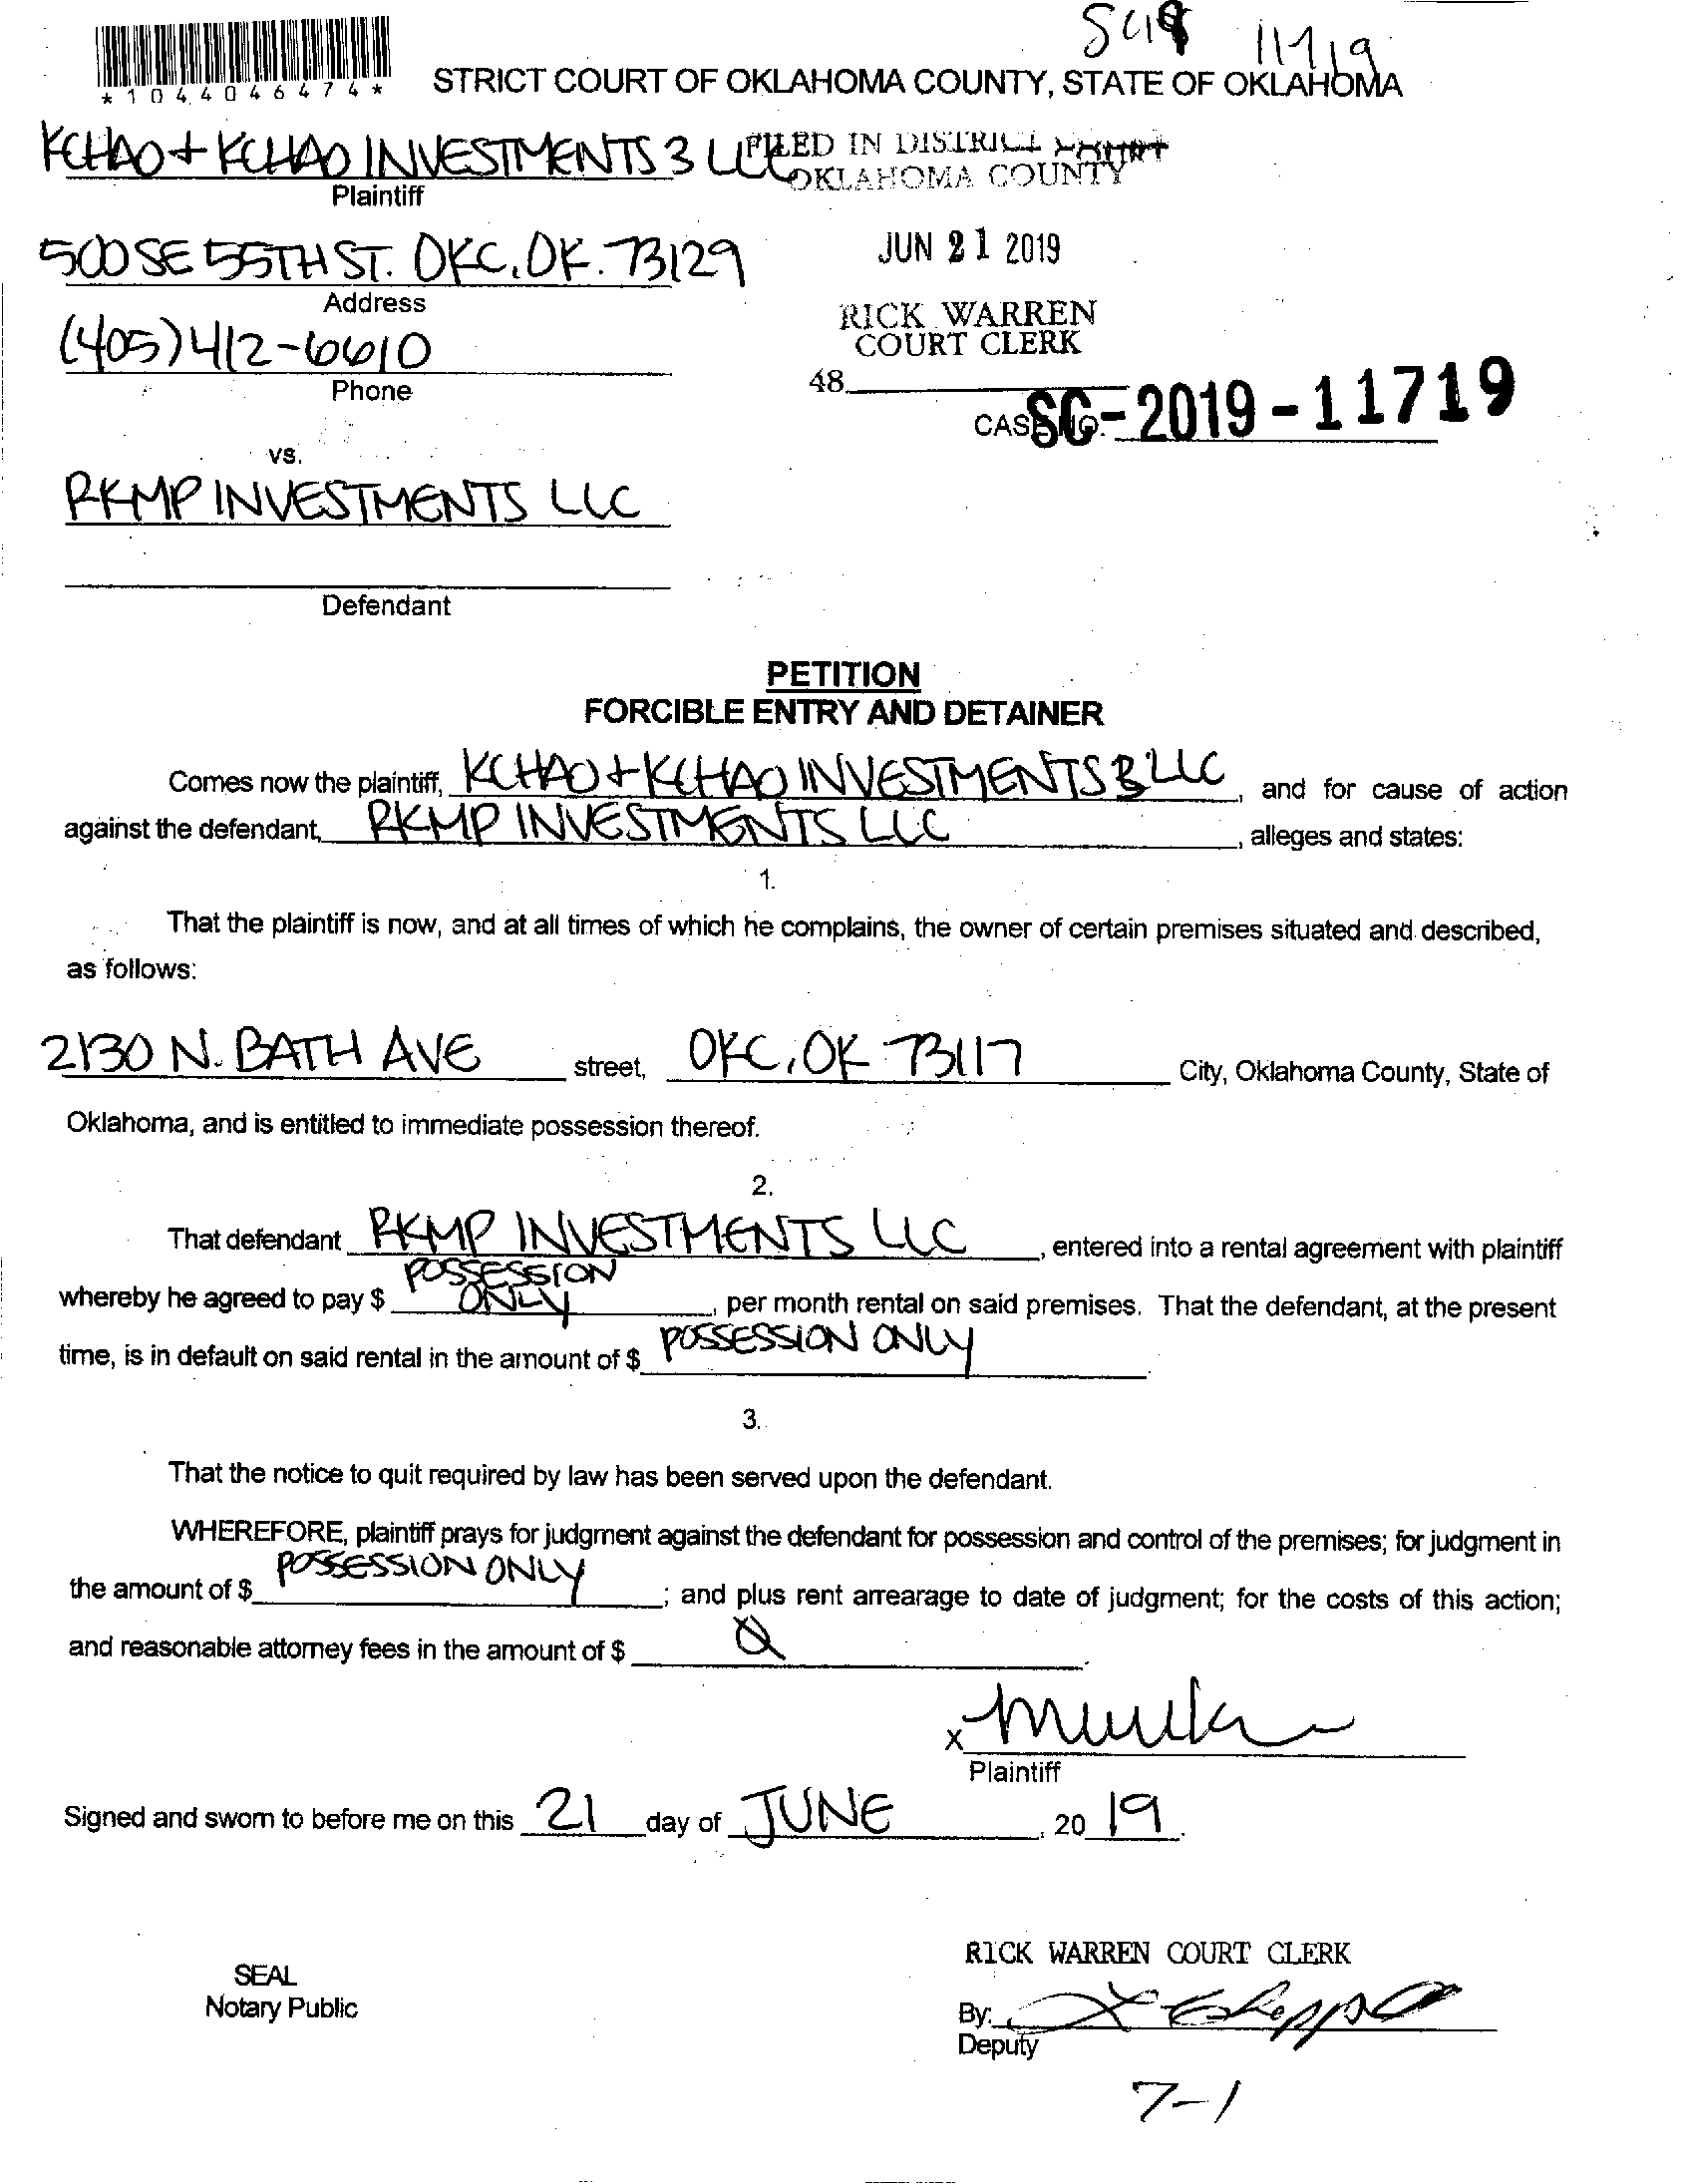 11719
*1044046474*
STRICT COURT OF OKLAHOMA COUNTY, STATE OF OKLAHOMA
KCHAO + KCHAO INVESTMENTS 3 LLC
Plaintiff
FILED IN DISTRICT COURT
OKLAHOMA COUNTY
500 SE 55TH ST. OKC, OK. 73129
Address
JUN 21 2019
(405) 412-6610
Phone
RICK WARREN
COURT CLERK
48
CASE NO. SC-2019-11719
vs.
RKMP INVESTMENTS LLC
Defendant
PETITION
FORCIBLE ENTRY AND DETAINER
Comes now the plaintiff, KCHAO + KCHAO INVESTMENTS 3 LLC, and for cause of action
against the defendant, RKMP INVESTMENTS LLC, alleges and states:
1.
That the plaintiff is now, and at all times of which he complains, the owner of certain premises situated and described,
as follows:
2130 N. BATH AVE street, OKC, OK 73117 City, Oklahoma County, State of
Oklahoma, and is entitled to immediate possession thereof.
2.
That defendant RKMP INVESTMENTS LLC, entered into a rental agreement with plaintiff
whereby he agreed to pay $ POSSESSION ONLY, per month rental on said premises. That the defendant, at the present
time, is in default on said rental in the amount of $ POSSESSION ONLY.
3.
That the notice to quit required by law has been served upon the defendant.
WHEREFORE, plaintiff prays for judgment against the defendant for possession and control of the premises; for judgment in
the amount of $ POSSESSION ONLY; and plus rent arrearage to date of judgment; for the costs of this action;
and reasonable attorney fees in the amount of $
X
Plaintiff
Signed and sworn to before me on this 21 day of JUNE, 20 19.
RICK WARREN COURT CLERK
SEAL
Notary Public
By:
Deputy
7-1